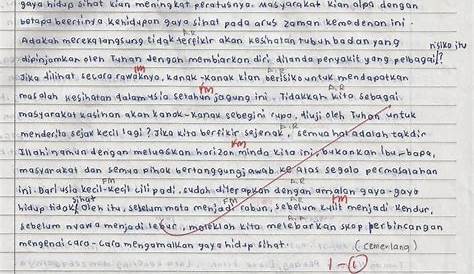 gaya hidup sihat kian meningkat peratusnya. Masyarakat kian alpa dengan
betapa beertinya kehidupan gaya sihat pada arus zaman kemodenan ini.
A.R
Adakah mereka langsung tidak terfikir akan kesihatan tubuh badan yang
nisika itu
dipinjamkan oleh Tuhan dengan membiarkan diri dilanda penyakit yang pelbagai?
FM
Jika dilihat secara rawaknya, kanak-kanak kian berisiko untuk mendapatkan
FM A.R
masalah kesihatan dalam usia setahun jagung ini. Tidakkah kita sebagai
masyarakat kasihan akan kanak-kanak sebegini rupa, diuji oleh Tuhan untuk
A.R
menderita sejak kecil lagi? Jika kita berfikir sejenak, semua hal adalah takdir
FM
Illahi namun dengan meluaskan horizon minda kita ini, bukankah Ibu-bapa,
masyarakat dan semua pihak bertanggungjawab ke atas segala permasalahan
FM A.R
ini. Dari usia kecil-kecil cili padi, sudah diterapkan dengan amalan gaya-gaya
sihat FM
hidup tidak. Oleh itu, sebelum mata menjadi rabun, sebelum kulit menjadi kendur,
sebelum nyawa menjadi lebur, moleklah kita melebarkan skop perbincangan
mengenai cara-cara mengamalkan gaya hidup sihat. (cemerlang)